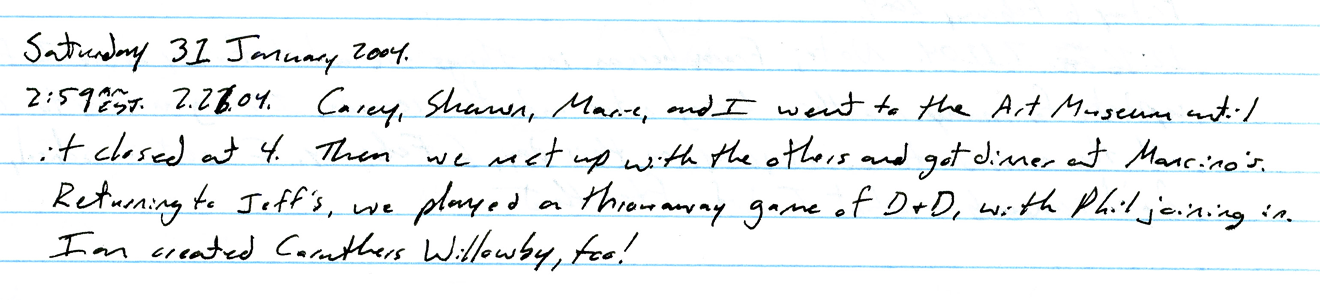 Saturday 31 January 2004.
2:59 AM EST. 2.26.04. Carey, Shawn, Marie, and I went to the Art Museum until
it closed at 4. Then we met up with the others and got dinner at Mancino's.
Returning to Jeff's, we played a throwaway game of D+D, with Phil joining in.
Ian created Caruthers Willowby, too!